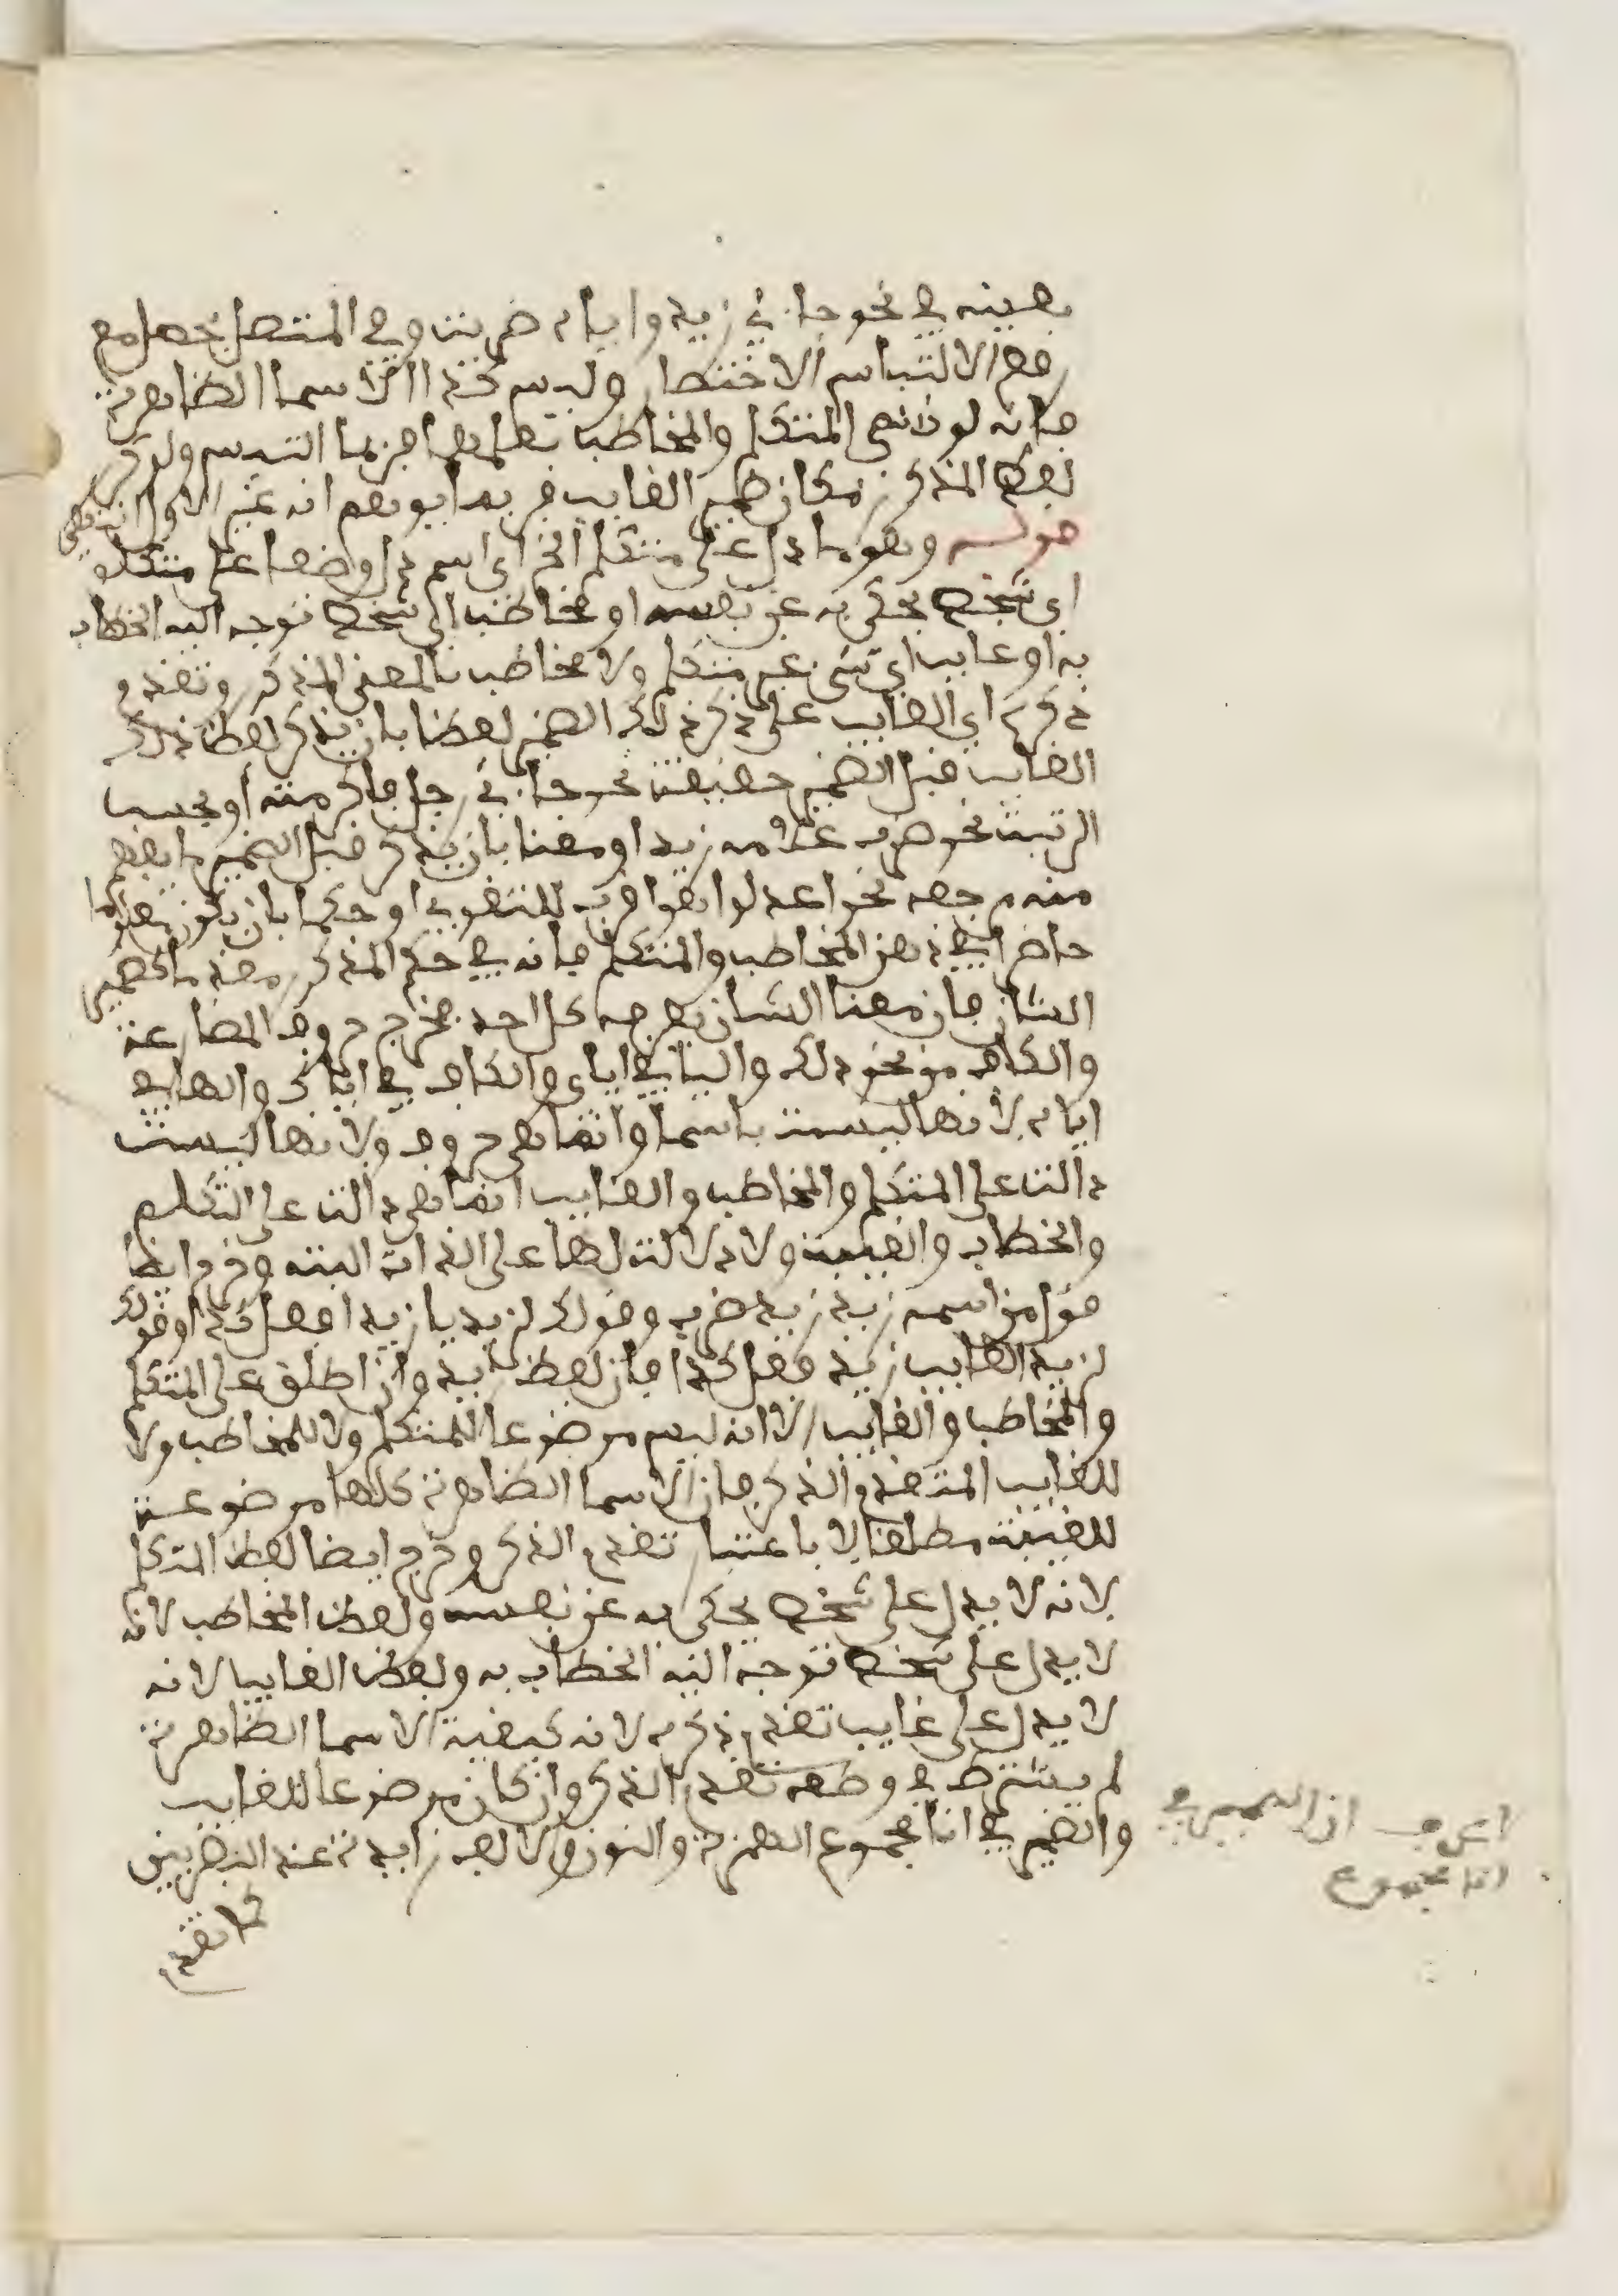 بعينه في نحو جاءني زيد واياه ضربت وفي المتصل يحصل مع
رفع الالتباس الاختصار وليس كذا الاسما الظاهرة
فانه لو سمي المتكلم والمخاطب بعلمهما فربما التبس ولو كرر
لفظ المذكور مكان ضمير الغايب فربما يوهم انه غير الاول انتهى
قوله وهو ما دل على متكلم الخ اي اسم دل وضعا على متكلم
اي شخص يحكي به عن نفسه او مخاطب اي شخص توجه اليه الخطاب
به او غايب اي شي غير متكلم ولا مخاطب بالمعنى المذكور وتقدم
ذكره اي الغايب على ذكر ذلك الضمير لفظا بان يذكر لفظ ذلك
الغايب قبل الضمير حقيقة نحو جاءني رجل فاكرمته او بحسب
الرتبة نحو ضرب غلامه زيد او معنا بان يذكر قبل الضمير ما يفهم
منه مرجعه نحو اعدلوا هو اقرب للتقوى او حكما بان يكون مفهوما
حاضرا في ذهن المخاطب والمتكلم فانه في حكم المذكور معنه ما كضمير
الشان فان معنا الشان يعرفه كل احد فخرج حروف المضارعة
والكاف من نحو ذلك واليا في اياي والكاف في اياك والها في
اياه لانها ليست باسما وانما هي حروف ولانها ليست
دالة على المتكلم والمخاطب والغايب انما هي دالة على التكلم
والخطاب والغيبة ولا دلالة لها على الذات البتة وخرج ايضا
قول من اسمه زيد زيد ضرب وقولك لزيد يا زيد افعل كذا وقولك
لزيد الغايب زيد فعل كذا فان لفظ زيد وان اطلق على المتكلم
والمخاطب والغايب الا انه ليس موضوعا للمتكلم ولا للمخاطب ولا
للغايب المتقدم الذكر فان الاسما الظاهرة كلها موضوعة
للغيبة مطلقا لا باعتبار تقدم الذكر وخرج ايضا لفظ المتكلم
لانه لا يدل على شخص يحكي به عن نفسه ولفظ المخاطب لانه
لا يدل على شخص توجه اليه الخطاب به ولفظ الغايب لانه
لا يدل على غايب تقدم ذكره لانه كبقية الاسما الظاهرة
لم يشترط في وضعه تقدم الذكر وان كان موضوعا للغايب
والضمير في انا مجموع الهمزة والنون والالف زايدة عند البصريين
كما تقدم
ان الضمير في
انا مجموع